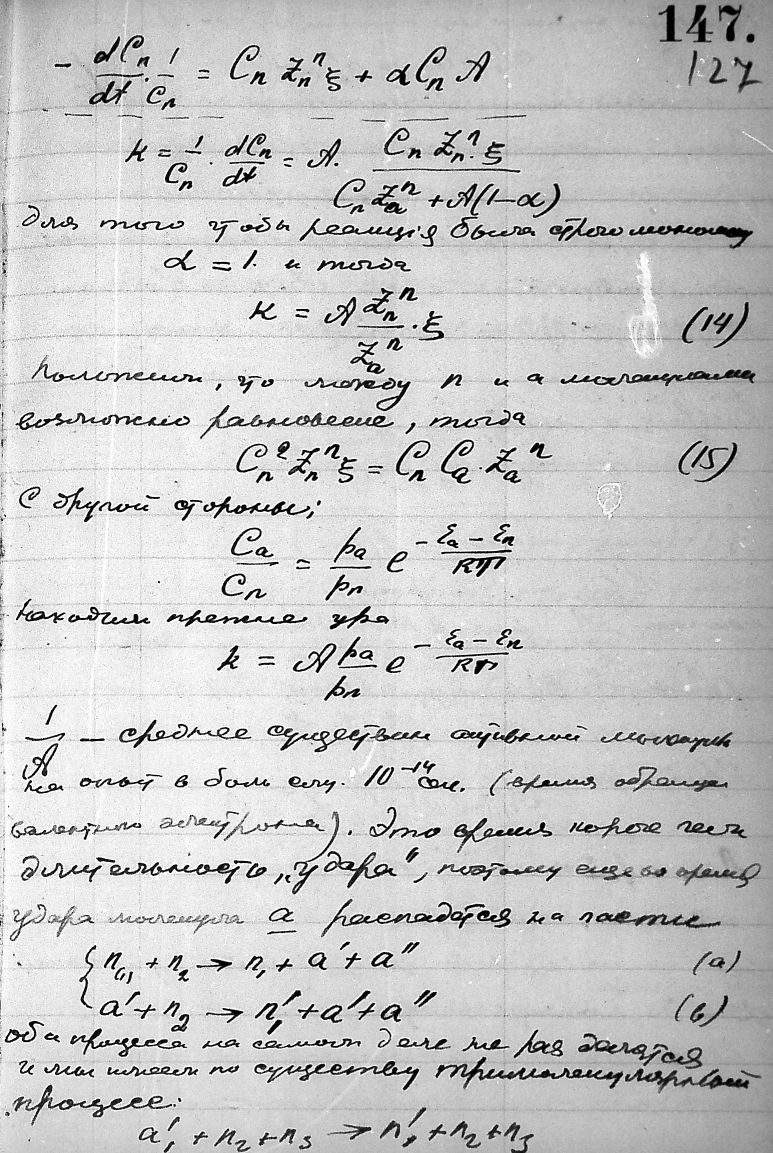 147.
127
- dCn/dt · 1/Cn = Cn Zn^n ξ + α Cn A
k = 1/Cn · dCn/dt = A · Cn Zn^n · ξ / (Cn Za^n + A(1-α))
для того чтобы реакция была строго мономол
α = 1 и тогда
k = A Zn^n / Za^n · ξ (14)
Положим, что между n и а молекулами
возможно равновесие, тогда
Cn² Zn^n ξ = Cn Ca · Za^n (15)
С другой стороны;
Ca/Cn = pa/pn e^(- (εa - εn)/RT)
находим прежнее ура
k = A pa/pn e^(- (εa - εn)/RT)
1/A — среднее существан активной молекулы
на опыт в боль слу. 10^-14 сек. (время обращен
валентного электрона). Это время короче чем
длительность „удара", поэтому еще во время
удара молекула а распадается на части
n(1) + n2 → n1 + a' + a'' (а)
a' + n2 → n1' + a' + a'' (в)
оба процесса на самом деле не раз делятся
и мы имеем по существу тримолекулярный
процесс:
a1' + n2 + n3 → n1' + n2 + n3